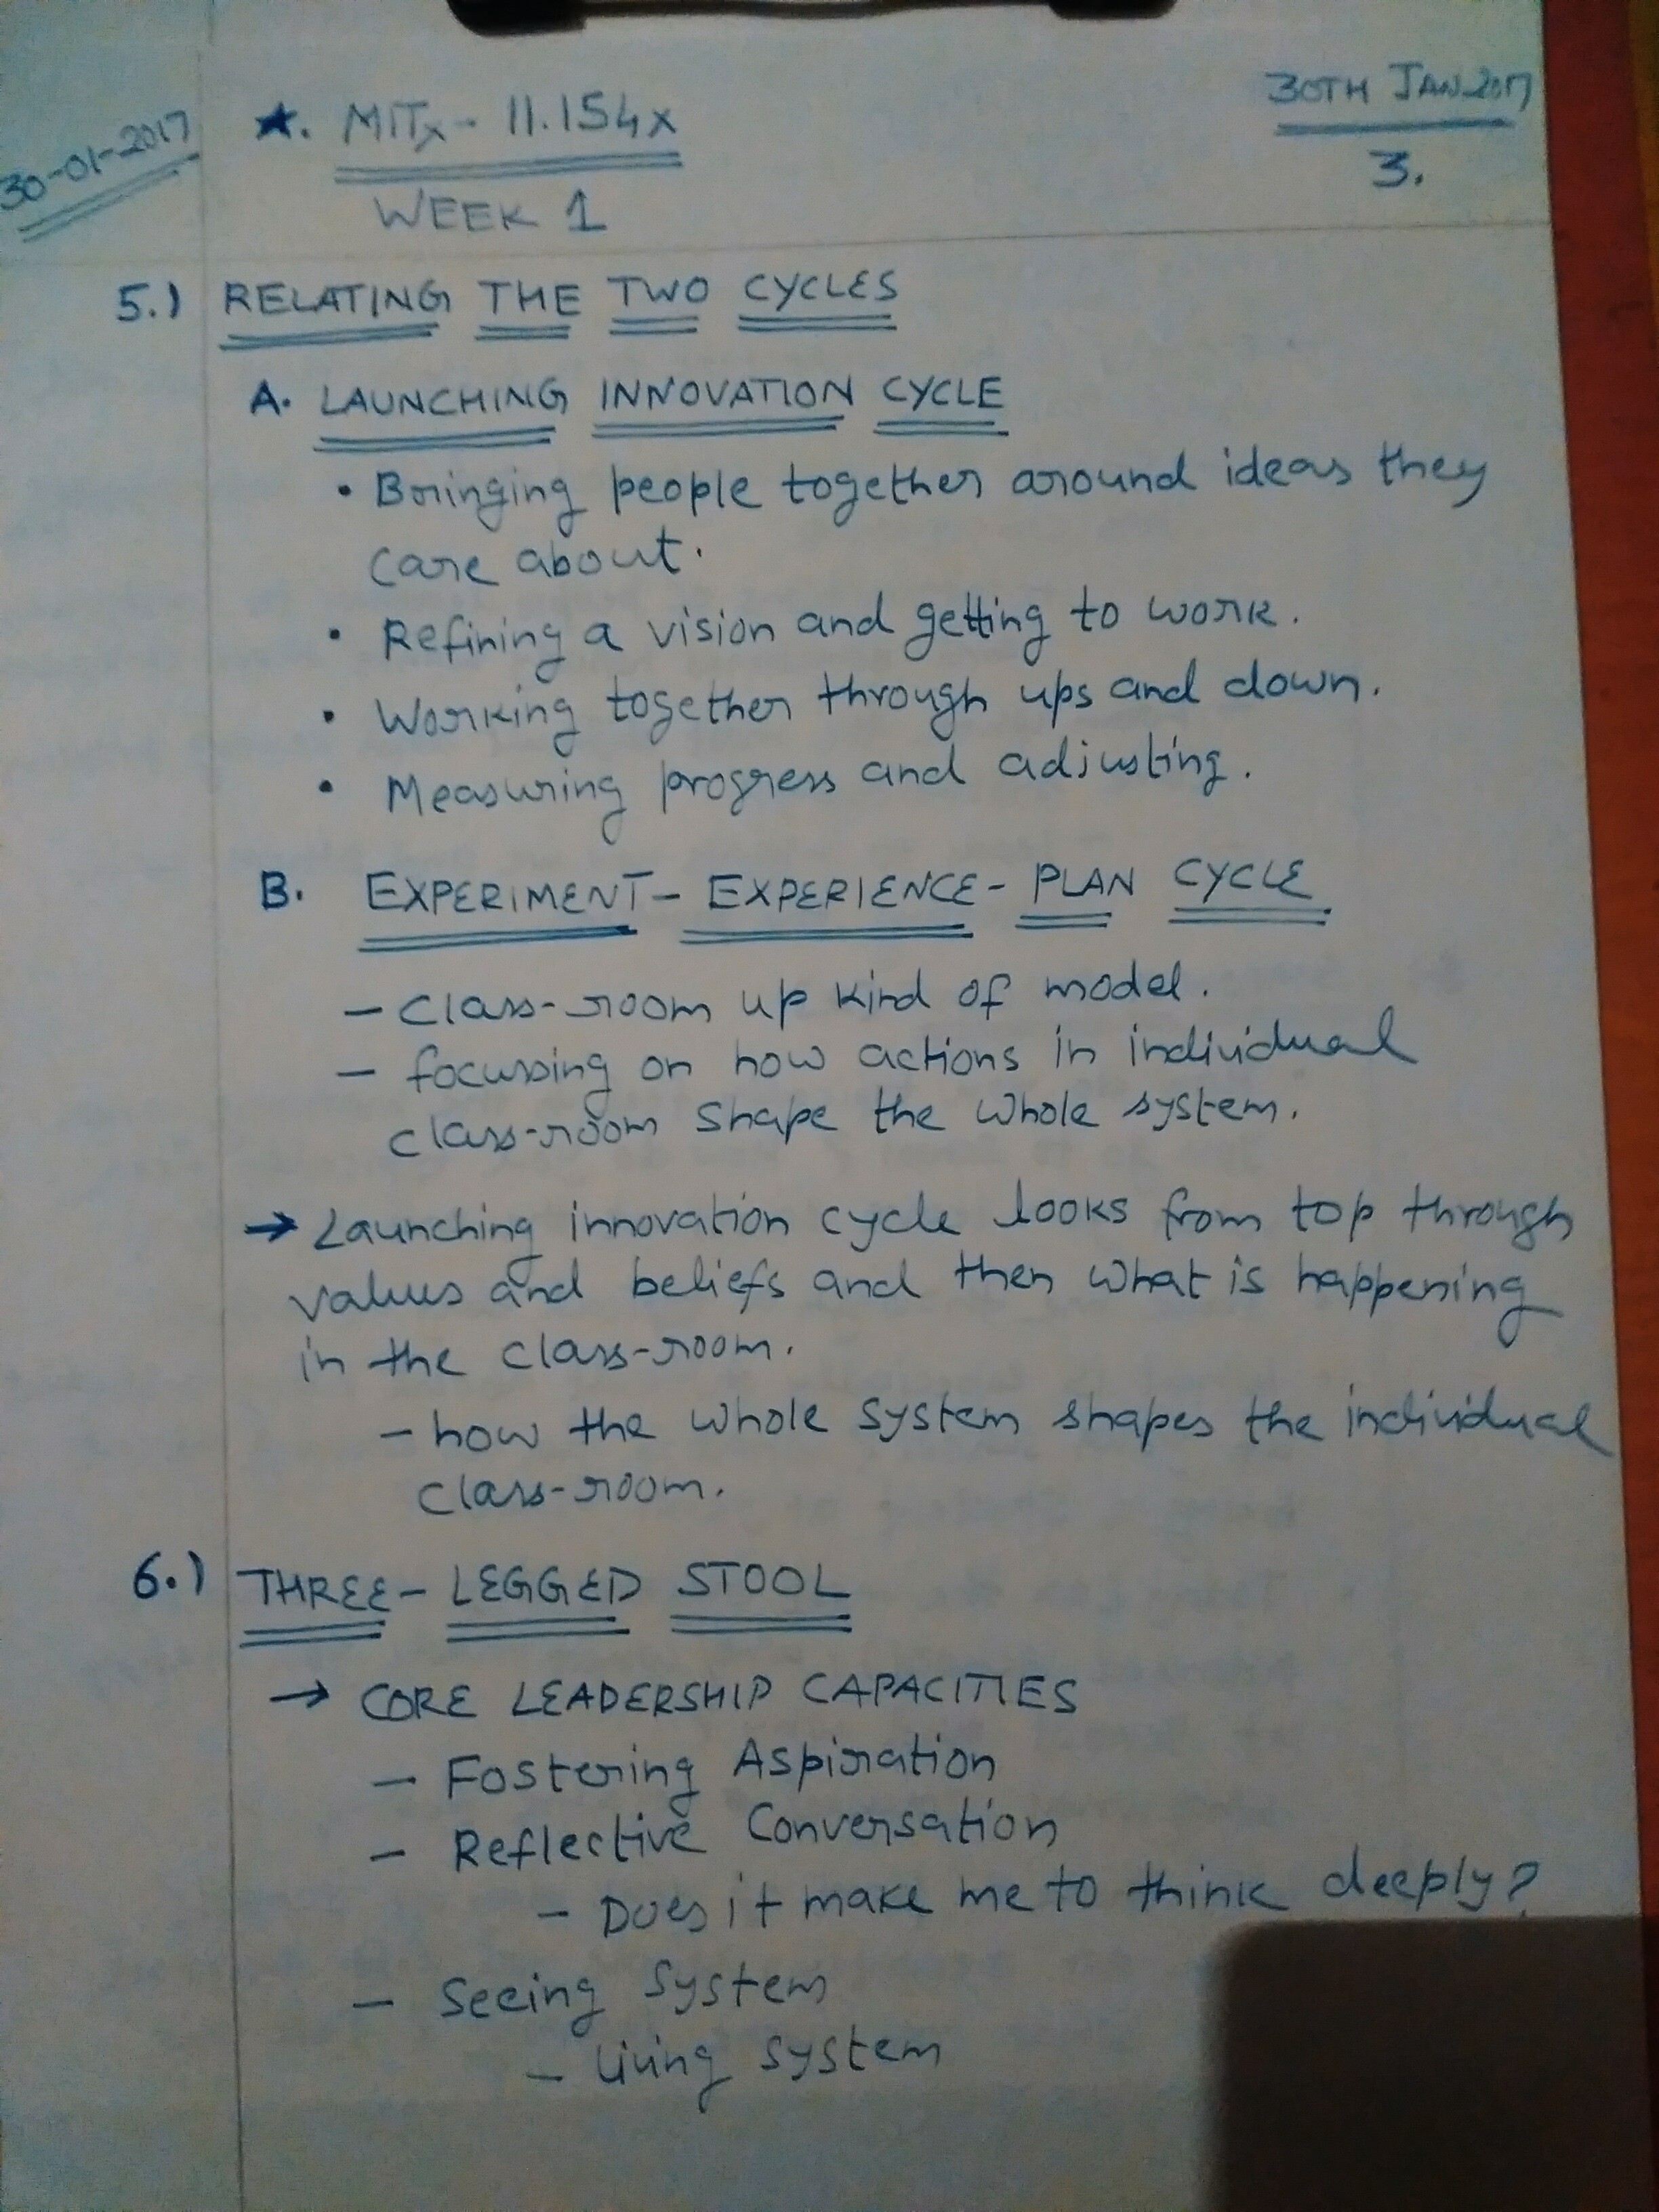 30-01-2017
★. MITx - 11.154x
WEEK 1
30TH JAN 2017
3.
5.) RELATING THE TWO CYCLES
A. LAUNCHING INNOVATION CYCLE
• Bringing people together around ideas they
care about.
• Refining a vision and getting to work.
• Working together through ups and down.
• Measuring progress and adjusting.
B. EXPERIMENT- EXPERIENCE- PLAN CYCLE
- Class-room up kind of model.
- focussing on how actions in individual
class-room shape the whole system.
→ Launching innovation cycle looks from top through
values and beliefs and then what is happening
in the class-room.
- how the whole system shapes the individual
class-room.
6.) THREE- LEGGED STOOL
→ CORE LEADERSHIP CAPACITIES
- Fostering Aspiration
- Reflective Conversation
- Does it make me to think deeply?
- Seeing System
- living system